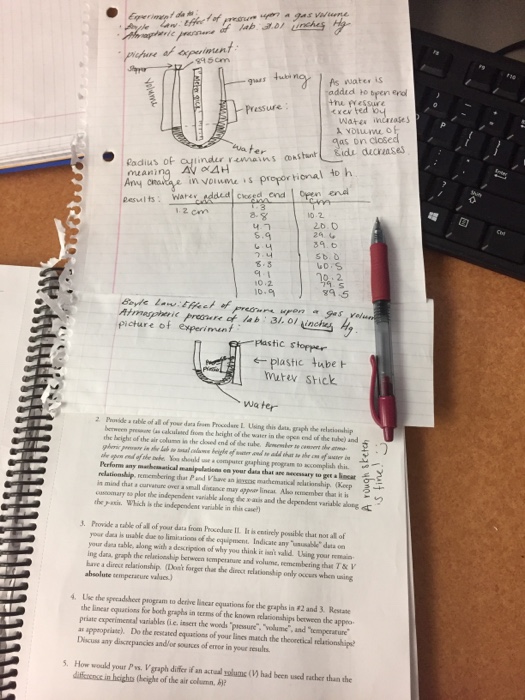 Experiment data:
Boyle Law: Effect of pressure upon a gas volume
Atmospheric pressure of lab 31.01 inches Hg
picture of experiment:
stopper
89.5cm
volume
glass tubing
Pressure:
water
As water is
added to open end
the pressure
exerted by
water increases
& volume of
gas on closed
side decreases
Radius of cylinder remains constant
meaning ΔV ∝ ΔH
Any change in volume is proportional to h
Results: Water added closed end Open end
cm cm cm
1.2cm 1.3
8.8 10.2
4.7 20.0
5.9 29.6
6.4 39.0
7.4 50.0
8.3 60.5
9.1 70.2
10.2 79.5
10.9 89.5
Boyle Law: Effect of pressure upon a gas volume
Atmospheric pressure of lab: 31.01 inches Hg.
picture of experiment:
plastic stopper
← plastic tube +
meter stick
water
A rough sketch
is fine! :)
2. Provide a table of all of your data from Procedure I. Using this data, graph the relationship
between pressure (as calculated from the height of the water in the open end of the tube) and
the height of the air column in the closed end of the tube. Remember to convert the atmo-
spheric pressure in the lab to total column height of water and to add that to the cm of water in
the open end of the tube. You should use a computer graphing program to accomplish this.
Perform any mathematical manipulations on your data that are necessary to get a linear
relationship, remembering that P and V have an inverse mathematical relationship. (Keep
in mind that a curvature over a small distance may appear linear. Also remember that it is
customary to plot the independent variable along the x-axis and the dependent variable along
the y-axis. Which is the independent variable in this case?)
3. Provide a table of all of your data from Procedure II. It is entirely possible that not all of
your data is usable due to limitations of the equipment. Indicate any "unusable" data on
your data table, along with a description of why you think it isn't valid. Using your remain-
ing data, graph the relationship between temperature and volume, remembering that T & V
have a direct relationship. (Don't forget that the direct relationship only occurs when using
absolute temperature values.)
4. Use the spreadsheet program to derive linear equations for the graphs in #2 and 3. Restate
the linear equations for both graphs in terms of the known relationships between the appro-
priate experimental variables (i.e. insert the words "pressure", "volume", and "temperature"
as appropriate). Do the restated equations of your lines match the theoretical relationships?
Discuss any discrepancies and/or sources of error in your results.
5. How would your P vs. V graph differ if an actual volume (V) had been used rather than the
difference in heights (height of the air column, h)?